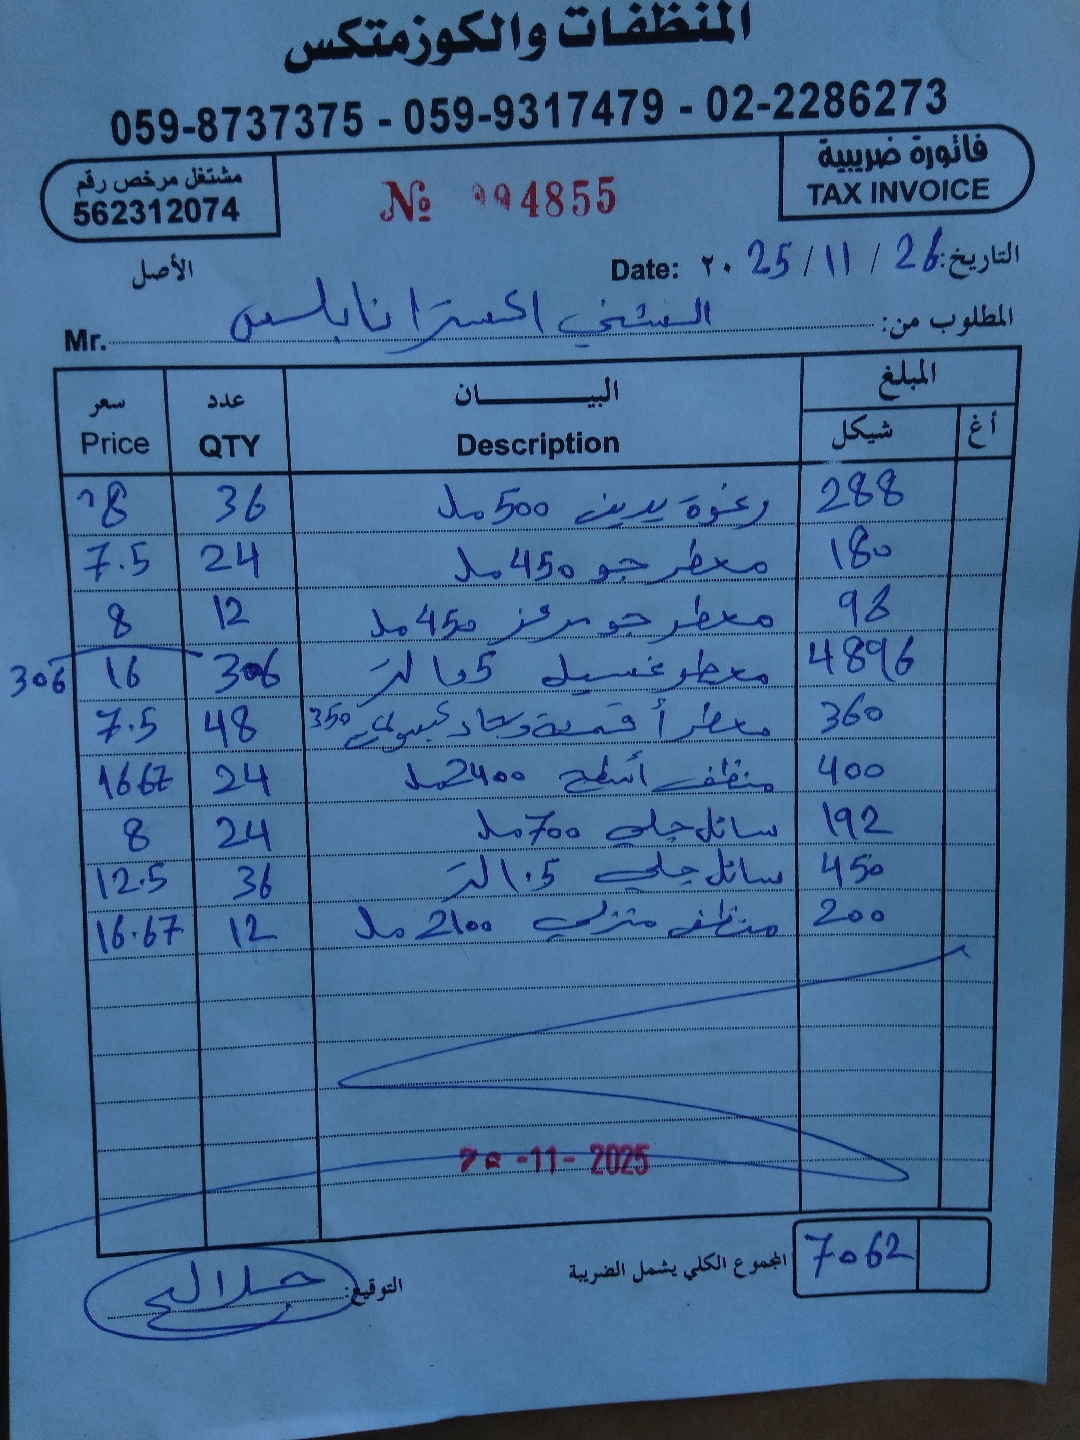 المنظفات والكوزمتكس
059-8737375 - 059-9317479 - 02-2286273
فاتورة ضريبية
TAX INVOICE
№ 4855
مشتغل مرخص رقم
562312074
الأصل
التاريخ: 26 / 11 / 25 ٢٠ Date:
المطلوب من: اكسترا نابلس Mr.
المبلغ البيــــــان عدد سعر
أغ شيكل Description QTY Price
288 رغوة يدين 500 مل 36 8
180 معطر جو 450 مل 24 7.5
96 معطر جو مركز 450 مل 12 8
4896 معطر غسيل لتر 306 16 306
360 معطر أقمشة 350 48 7.5
400 منظف أسطح 2400 مل 24 1667
192 سائل جلي 700 مل 24 8
450 سائل جلي 1.5 لتر 36 12.5
200 منظف منزلي 2100 مل 12 16.67
-11- 2025
المجموع الكلي يشمل الضريبة 7062
التوقيع: